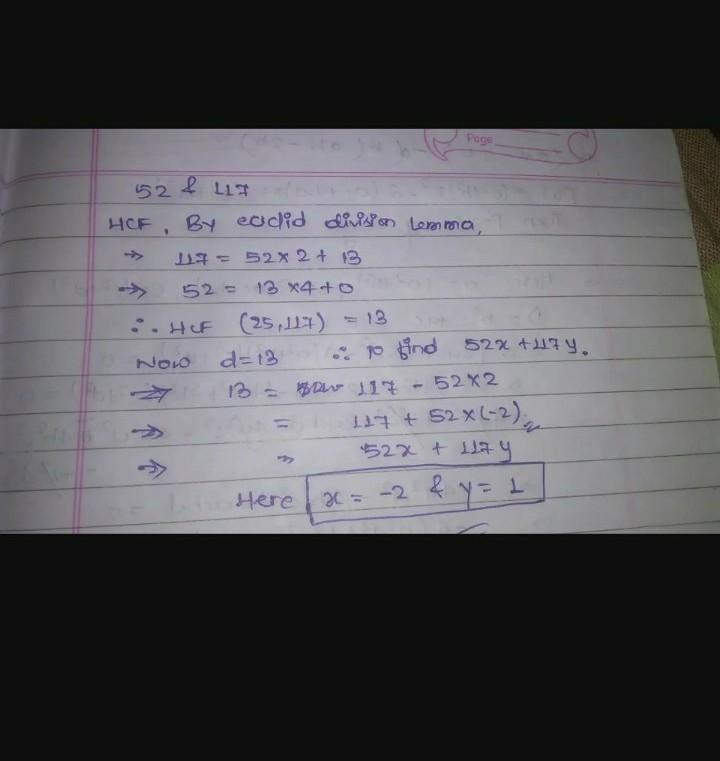 Page
52 & 117
HCF, By euclid division lemma,
⇒ 117 = 52×2 + 13
⇒ 52 = 13 ×4+0
∴ HCF (25,117) = 13
Now d=13 ∴ to find 52x +117y.
⇒ 13 = 117 - 52×2
⇒ = 117 + 52×(-2)
⇒ ⇒ 52x + 117y
Here x = -2 & y = 1